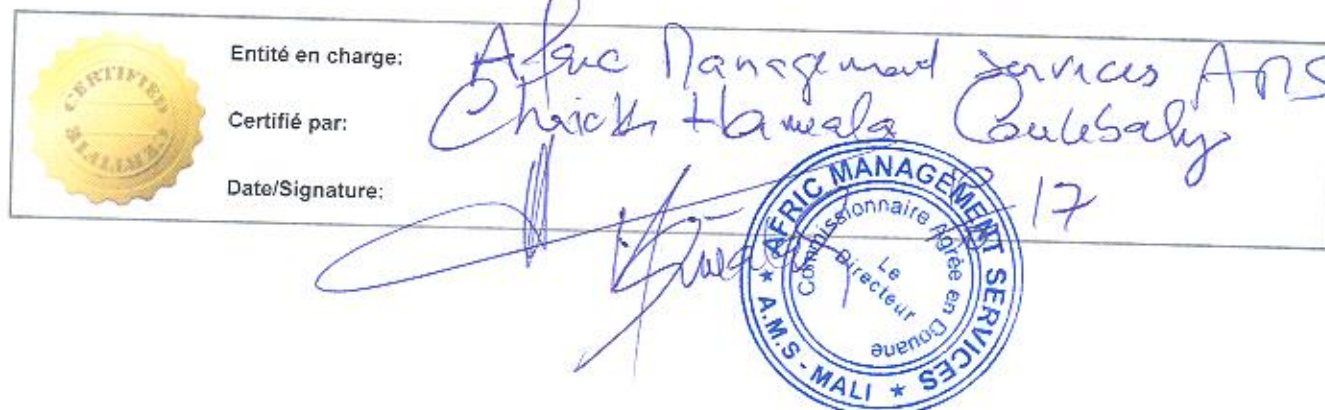 CERTIFIED
Entité en charge: Afric Management Services AMS
Certifié par: Cheick Hamala Coulibaly
Date/Signature: 17
AFRIC MANAGEMENT SERVICES
Commissionnaire Agrée en Douane
Le
Directeur
* A.M.S - MALI *